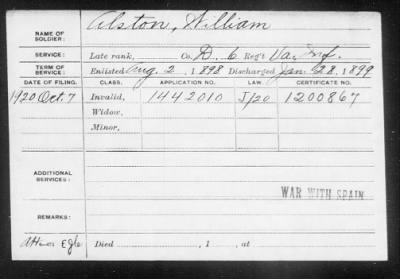 NAME OF SOLDIER: Alston, William
SERVICE: Late rank, Co. D. 6 Reg't Va. Inf.
TERM OF SERVICE: Enlisted Aug. 2, 1898 Discharged Jan. 28, 1899
DATE OF FILING. CLASS. APPLICATION NO. LAW. CERTIFICATE NO.
1920 Oct. 7 Invalid, 1442010 J/20 1200867
Widow,
Minor,
ADDITIONAL SERVICES:
WAR WITH SPAIN
REMARKS:
Died , 1 , at